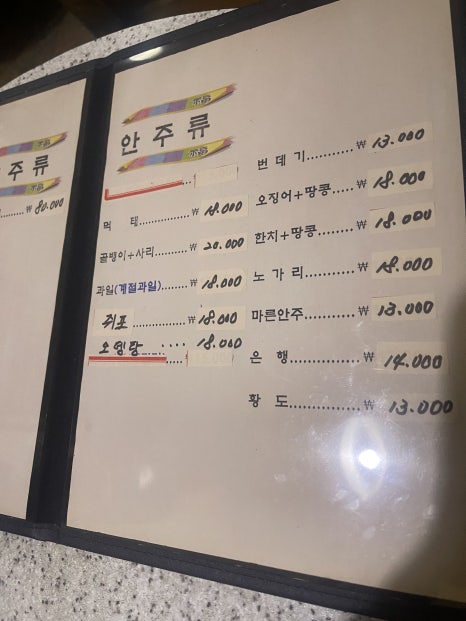 주류
₩ 80.000
안주류
먹 태 ₩ 18.000
골뱅이+사리 ₩ 20.000
과일(계절과일) ₩ 18.000
쥐포 ₩ 18.000
오뎅탕 18.000
번데기 ₩ 13.000
오징어+땅콩 ₩ 18.000
한치+땅콩 ₩ 18.000
노가리 ₩ 18.000
마른안주 ₩ 13.000
은 행 ₩ 14.000
황 도 ₩ 13.000